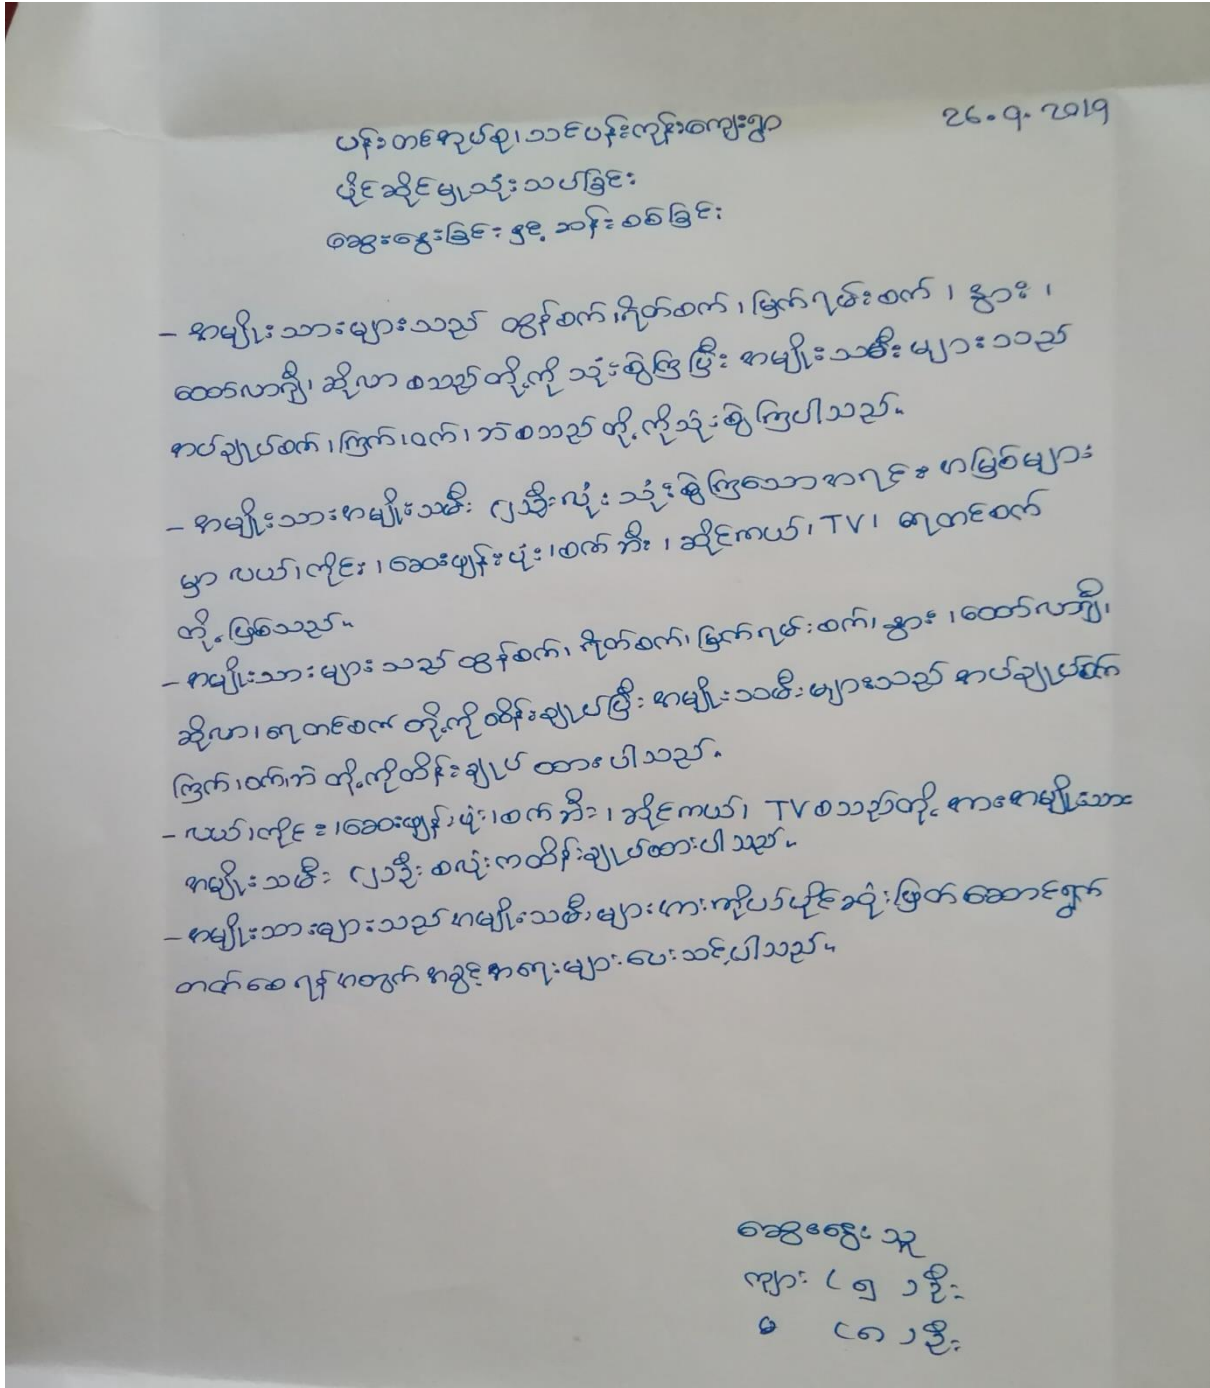 26.9.2019
ပန်းတင်အုပ်စု၊သင်ပန်းကုန်းကျေးရွာ
ပိုင်ဆိုင်မှုသုံးသပ်ခြင်း
ဆွေးနွေးခြင်းနှင့် ဆန်းစစ်ခြင်း
- အမျိုးသားများသည် ထွန်စက်၊ရိတ်စက်၊မြက်ရမ်းစက်၊ နွား၊
ထော်လာဂျီ၊ ဆိုလာ စသည်တို့ကို သုံးစွဲကြပြီး အမျိုးသမီးများသည်
အပ်ချုပ်စက်၊ကြက်၊ဝက်၊ဘဲစသည်တို့ကိုသုံးစွဲကြပါသည်။
- အမျိုးသားအမျိုးသမီး ၂ဦးလုံး သုံးစွဲကြသောအရင်းအမြစ်များ
မှာ လယ်၊ကိုင်း၊ဆေးဖျန်းပုံး၊စက်ဘီး၊ ဆိုင်ကယ်၊TV၊ ရေတင်စက်
တို့ဖြစ်သည်။
- အမျိုးသားများသည် ထွန်စက်၊ ရိတ်စက်၊မြက်ရမ်းစက်၊နွား၊ထော်လာဂျီ၊
ဆိုလာ၊ရေတင်စက် တို့ကိုထိန်းချုပ်ပြီး အမျိုးသမီးများသည် အပ်ချုပ်စက်
ကြက်၊ဝက်၊ဘဲ တို့ကိုထိန်းချုပ် ထားပါသည်။
- လယ်၊ကိုင်း၊ဆေးဖျန်းပုံး၊စက်ဘီး၊ဆိုင်ကယ်၊ TVစသည်တို့ အားအမျိုးသား
အမျိုးသမီး ၂ဦး စလုံးကထိန်းချုပ်ထားပါသည်။
- အမျိုးသားများသည်အမျိုးသမီးများအားကိုယ်ပိုင်ဆုံးဖြတ်ဆောင်ရွက်
တတ်စေရန်အတွက်အခွင့်အရေးများပေးသင့်ပါသည်။
ဆွေးနွေးသူ
ကျား (၅)ဦး
မ (၈)ဦး